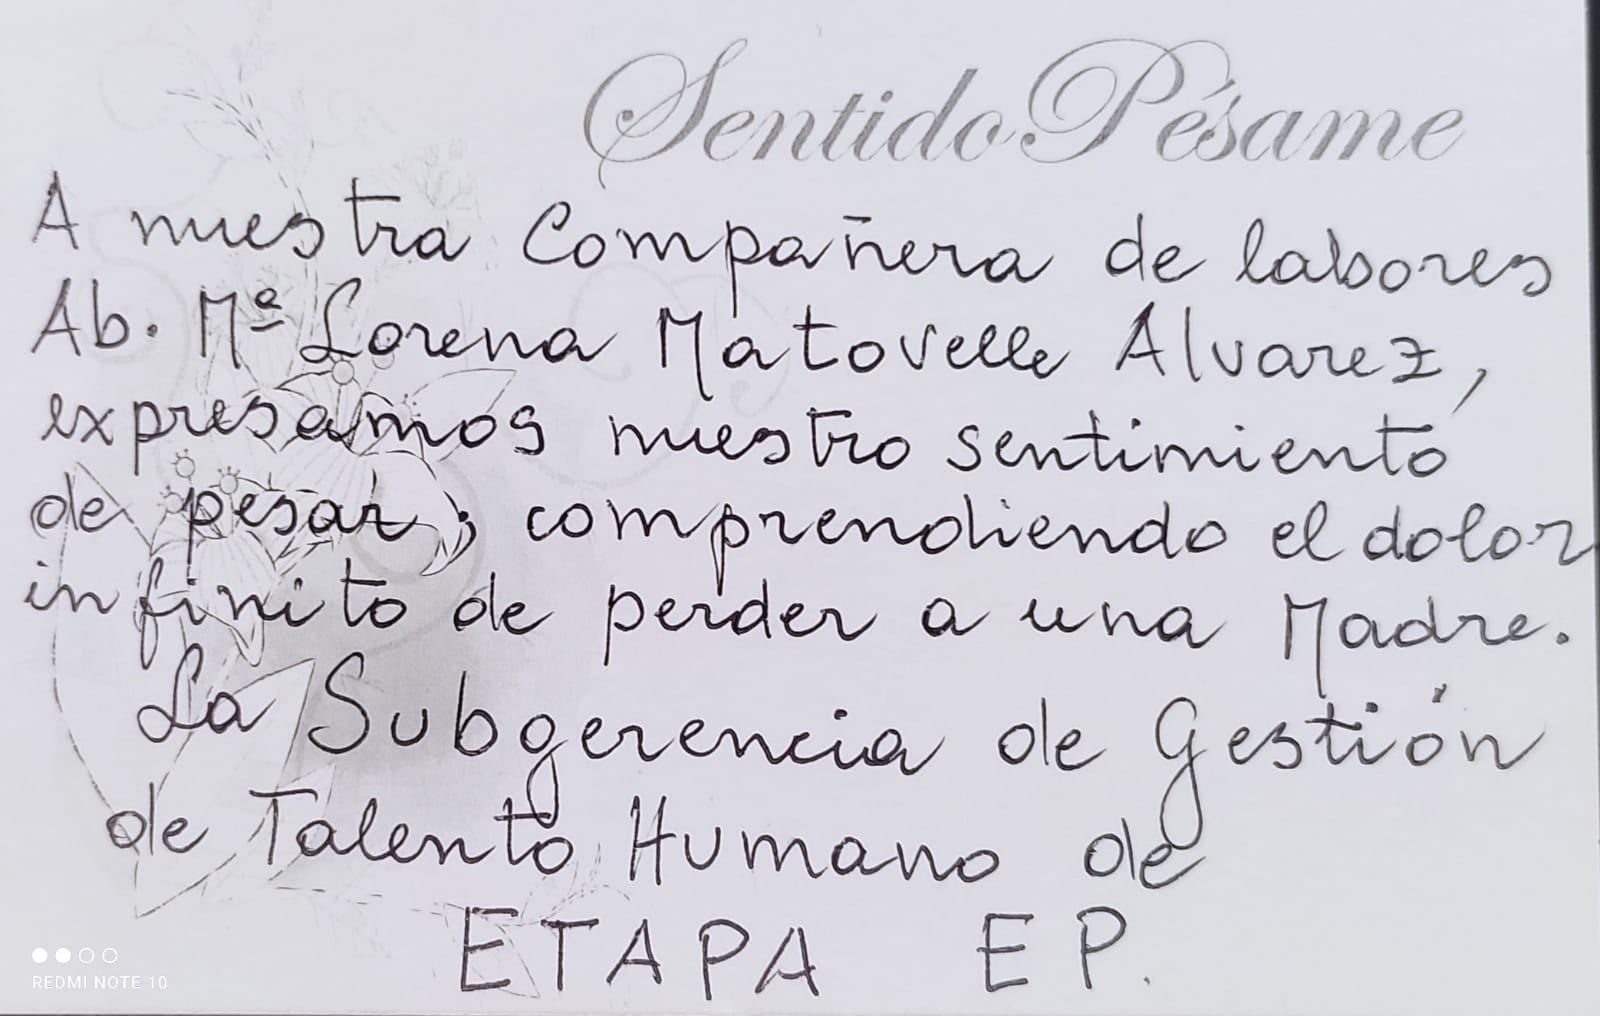 Sentido Pésame
A nuestra Compañera de labores
Ab. Mª Lorena Matovelle Alvarez,
expresamos nuestro sentimiento
de pesar; comprendiendo el dolor
infinito de perder a una Madre.
La Subgerencia de Gestión
de Talento Humano de
ETAPA EP.
REDMI NOTE 10